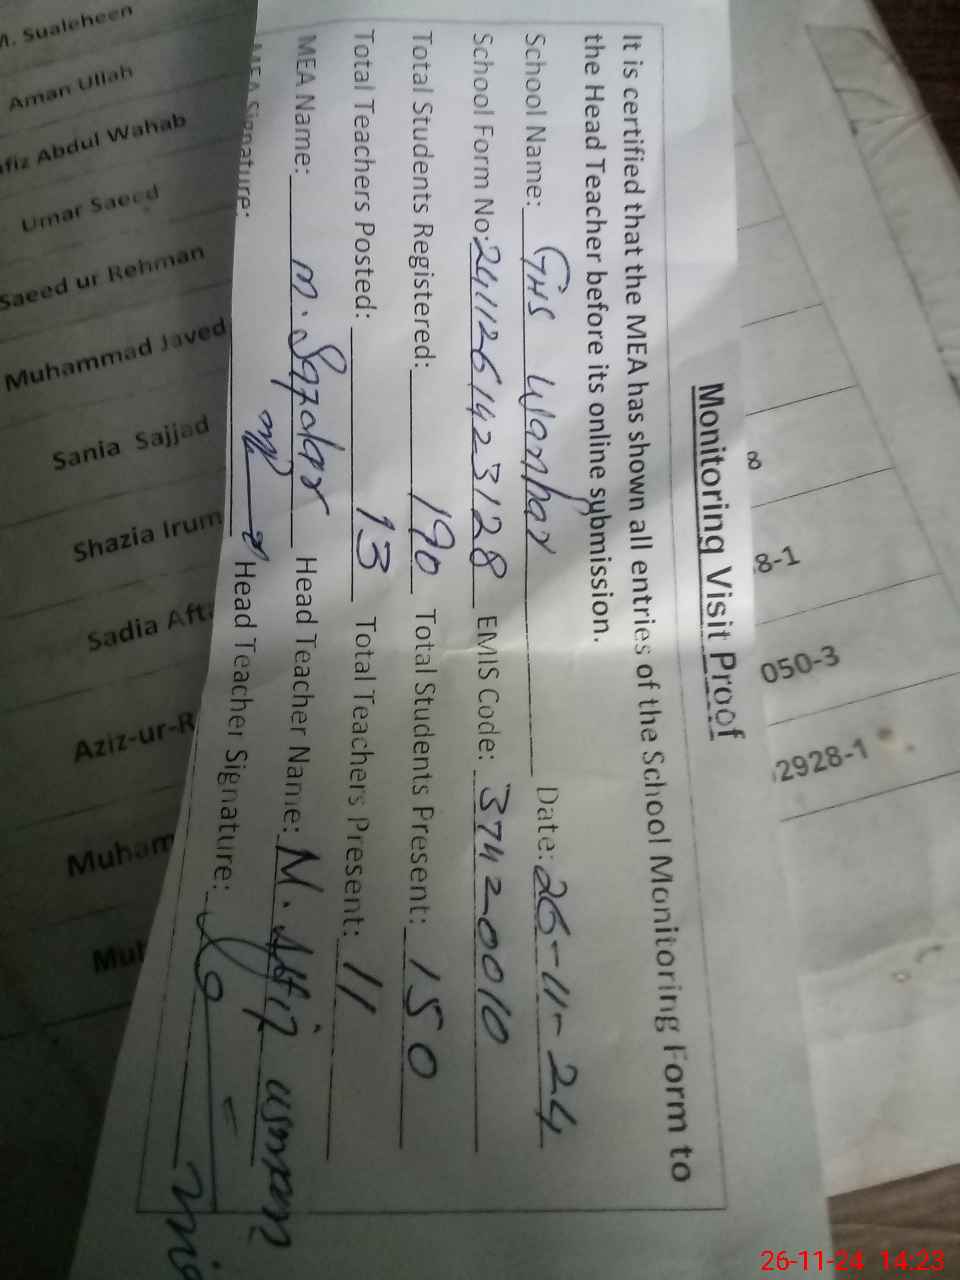 Monitoring Visit Proof
It is certified that the MEA has shown all entries of the School Monitoring Form to
the Head Teacher before its online submission.
School Name: GHS Wanhar Date: 26-11-24
School Form No: 2411261423128 EMIS Code: 37420010
Total Students Registered: 190 Total Students Present: 150
Total Teachers Posted: 13 Total Teachers Present: 11
MEA Name: M. Safdar Head Teacher Name: M. Afiq usman
MEA Signature: Head Teacher Signature:
M. Sualeheen
Aman Ullah
fiz Abdul Wahab
Umar Saeed
Saeed ur Rehman
Muhammad Javed
Sania Sajjad
Shazia Irum
Sadia Afta
Aziz-ur-R
Muham
Muh
8
8-1
050-3
2928-1
26-11-24 14:23